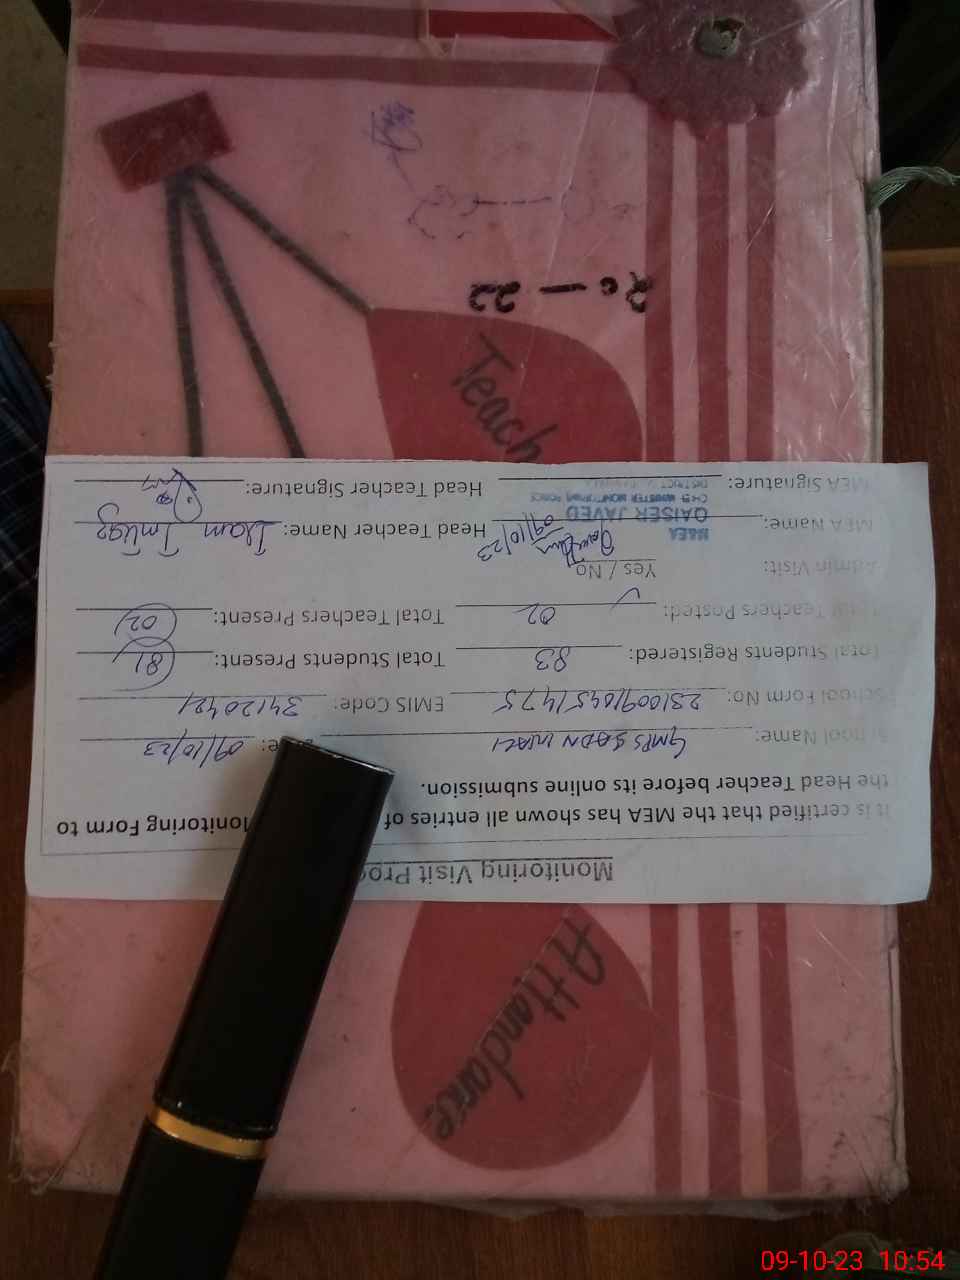 Monitoring Visit Pro
It is certified that the MEA has shown all entries of Monitoring Form to
the Head Teacher before its online submission.
School Name: GMPS SADN WALI Date: 09/10/23
School Form No: 231009104514 75 EMIS Code: 34120421
Total Students Registered: 83 Total Students Present: 81
Total Teachers Posted: 02 Total Teachers Present: 02
Admin Visit: Yes / No
MEA Name: Head Teacher Name: Ilam Imtiaz
M&EA
QAISER JAVED
CHIEF MINISTER MONITORING FORCE
DISTRICT
09/10/23
MEA Signature: Head Teacher Signature:
Teach
Attandance
20-22
09-10-23 10:54